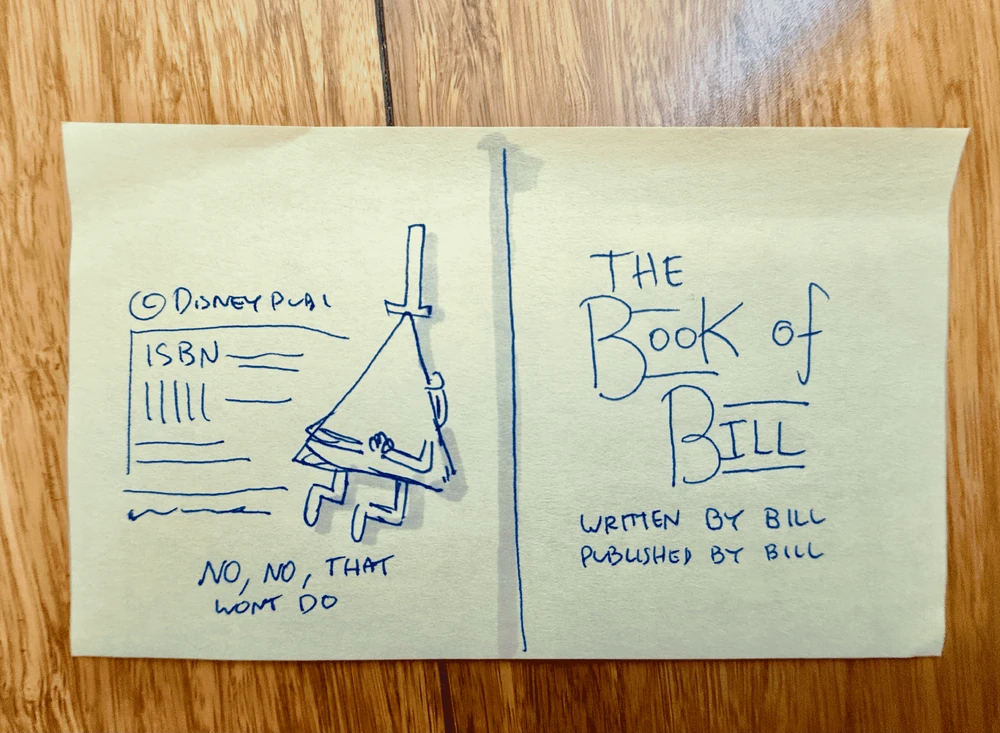 © DISNEY PUBL
ISBN
NO, NO, THAT
WONT DO
THE
BOOK of
BILL
WRITTEN BY BILL
PUBLISHED BY BILL